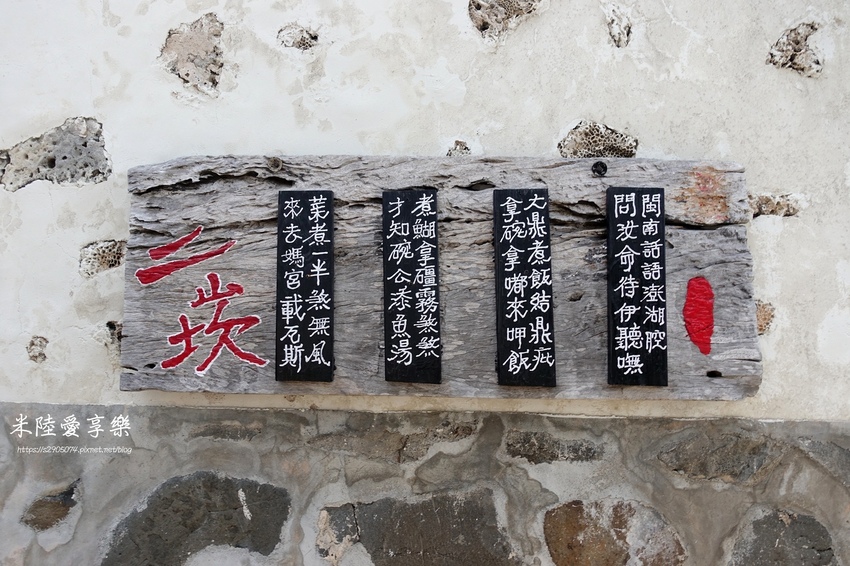 閩南話語澎湖腔
問汝命待伊聽嘸
大鼎煮飯結鼎疕
拿碗拿嘟來呷飯
煮餬拿礓霧煞煞
才知碗公悉魚湯
菜煮一半煞無風
來去媽宮載瓦斯
二崁
米陸愛享樂
https://s2905074.pixnet.net/blog